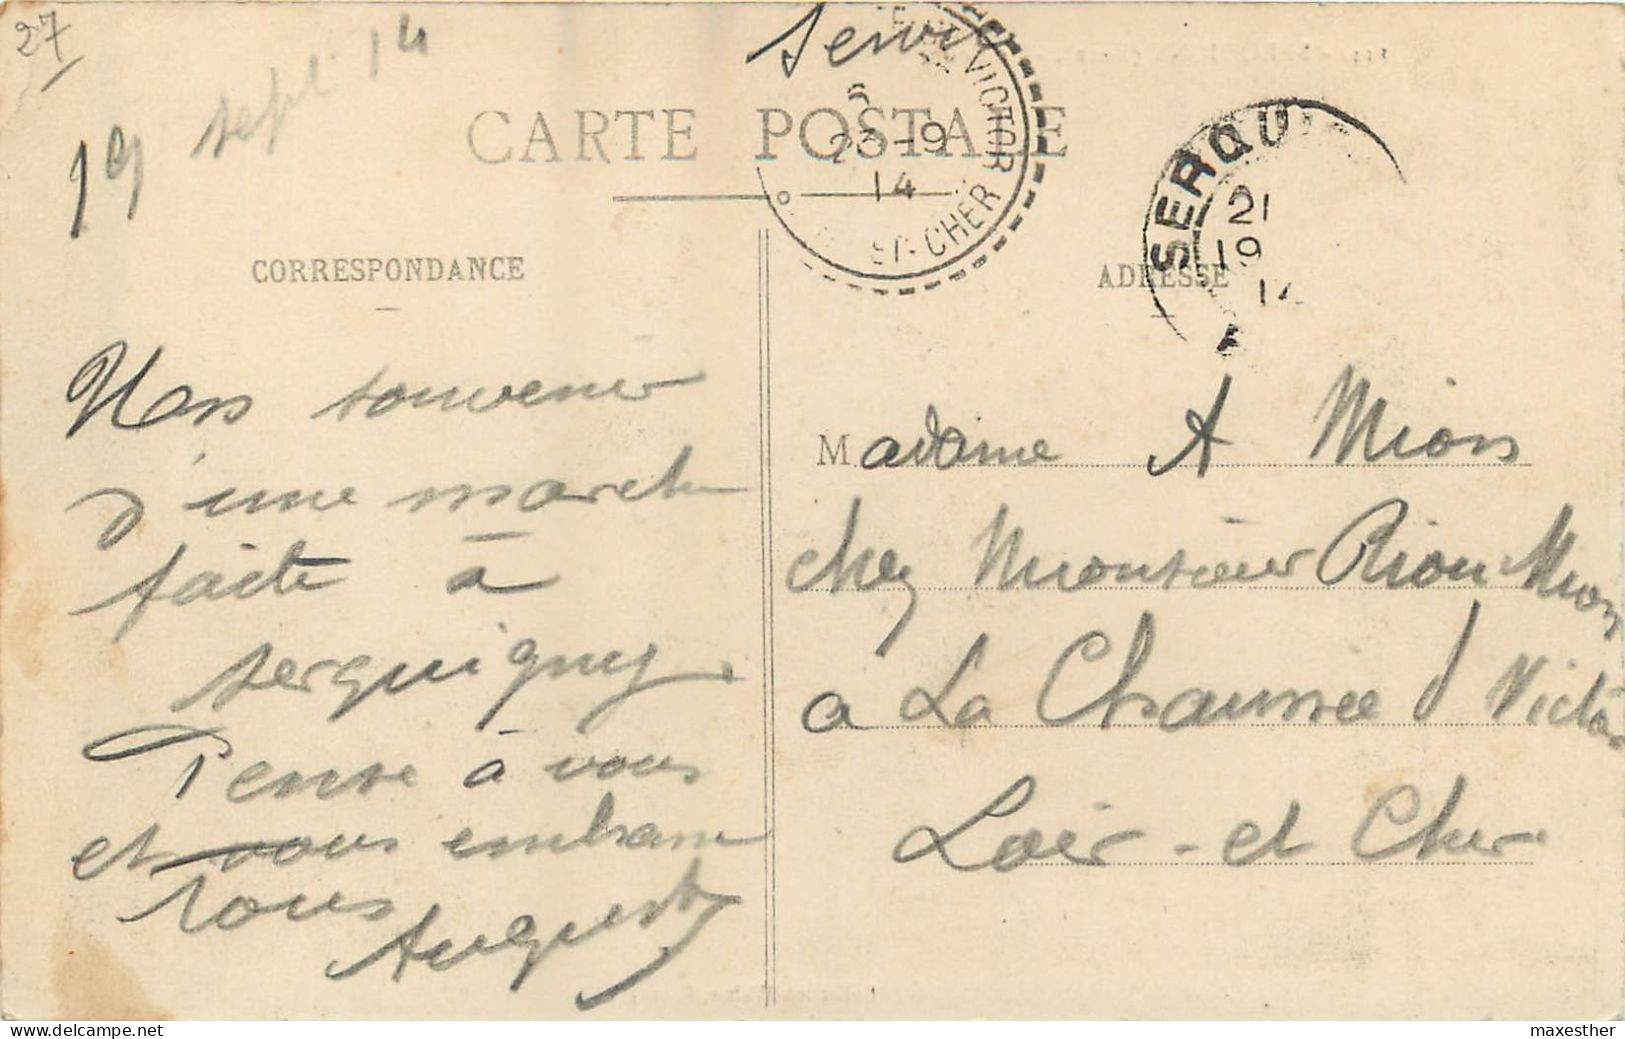 27
19 sept 14
Servic
CARTE POSTALE
VICTOR
5
23-9
14
CHER
SERQU
21
19
14
CORRESPONDANCE
ADRESSE
souvenir
d'une marche
faite à
Serquigny.
Pense à vous
et vous embrasse
tous
Auguste
Madame A Mion
chez Monsieur Riou Mion
a La Chaussée St Victor
Loir-et Cher
maxesther